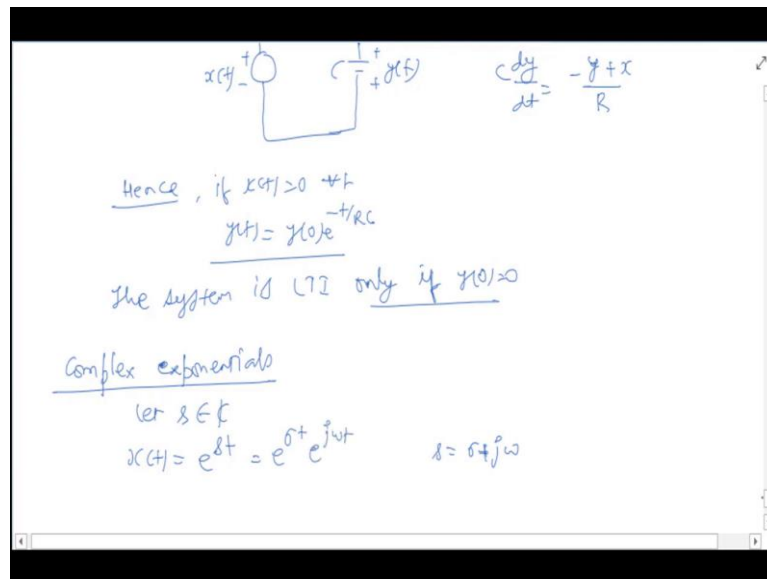 x(t) + - C + + y(t) C dy/dt = -y+x/R
Hence, if x(t)=0 ∀t
y(t) = y(0)e^-t/RC
The system is LTI only if y(0)=0
Complex exponentials
Let s ∈ ℂ
x(t) = e^st = e^σt e^jωt s = σ+jω